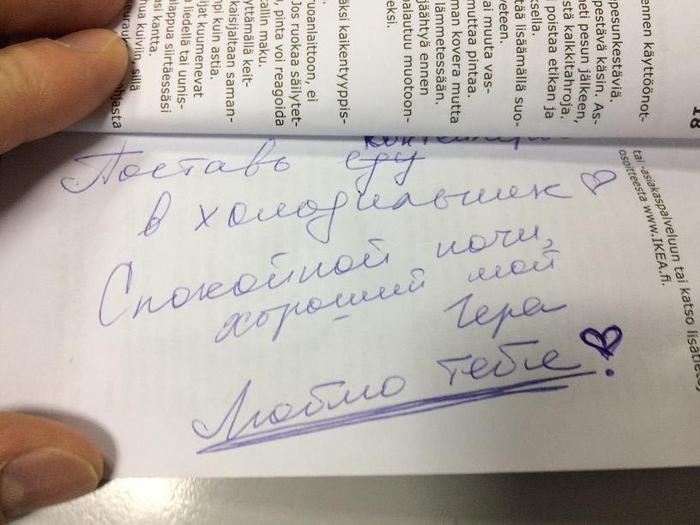 18
ennen käyttöönot-
pesunkestäviä.
pestävä käsin. As-
neti pesun jälkeen,
stä kalkkitahroja,
poistaa etikan ja
ksella.
tää lisäämällä suo-
veteen.
ai muuta vas-
muttaa pintaa.
man kovera mutta
lämmetessään.
jäähtyä ennen
palautuu muotoon-
eksi.
äksi kaikentyyppis-
ruoanlaittoon, ei
Jos ruokaa säilytet-
, pinta voi reagoida
tallin maku.
yttämällä keit-
kaisijaltaan saman-
npi kuin astia.
ijat kuumenevat
a liedellä tai uunis-
alappua siirtäessäsi
asi kantta.
nua kuiviin, sillä
ohjasta
tai -asiakaspalveluun tai katso lisätietoj
osoitteesta www.IKEA.fi.
Поставь еду
в холодильник ♡
Спокойной ночи,
хороший мой
Гера
Люблю тебе!